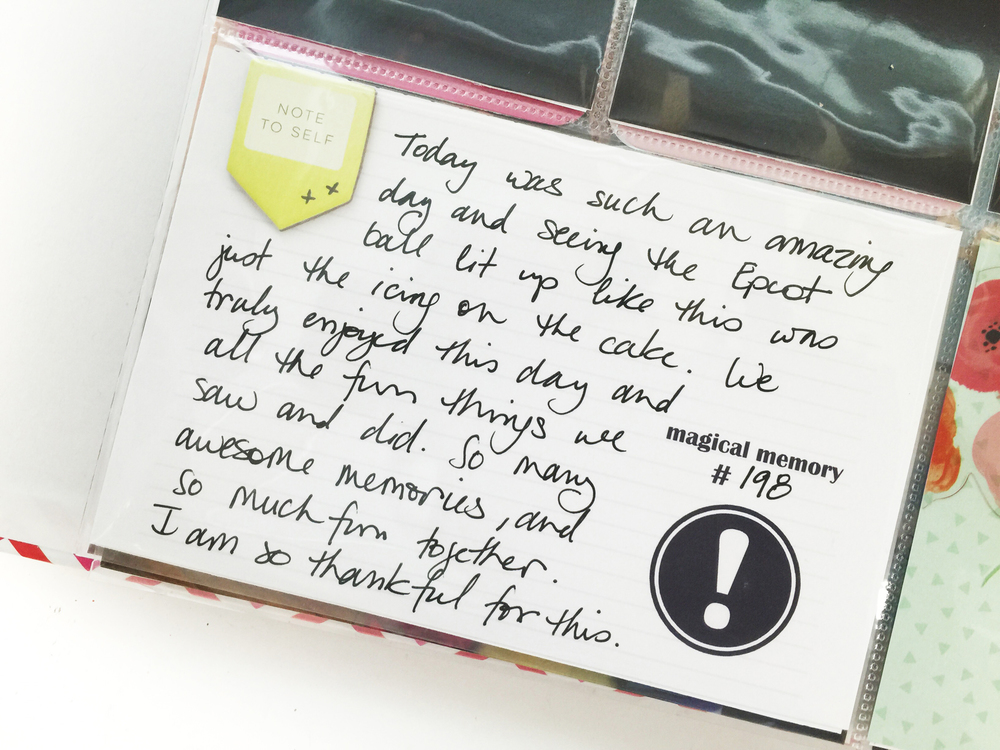 NOTE
TO SELF
Today was such an amazing
day and seeing the Epcot
ball lit up like this was
just the icing on the cake. We
truly enjoyed this day and
all the fun things we
saw and did. So many
awesome memories, and
so much fun together.
I am so thankful for this.
magical memory
# 198
!